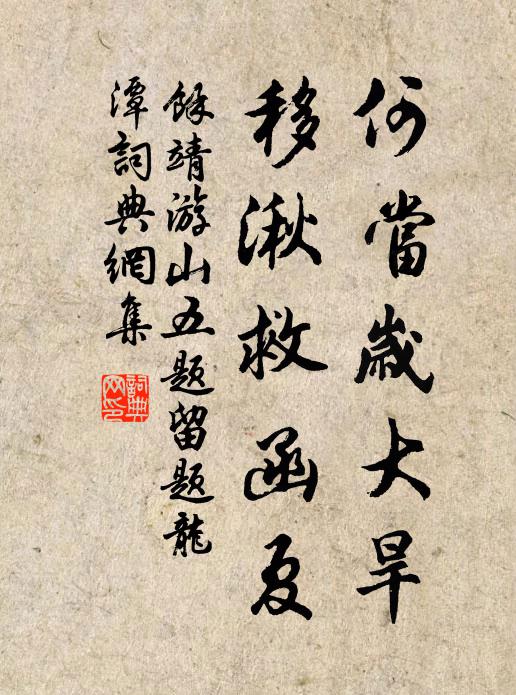 何當歲大旱
移湫救函夏
餘靖游山五題留題龍
潭詞典網集
詞典
网印